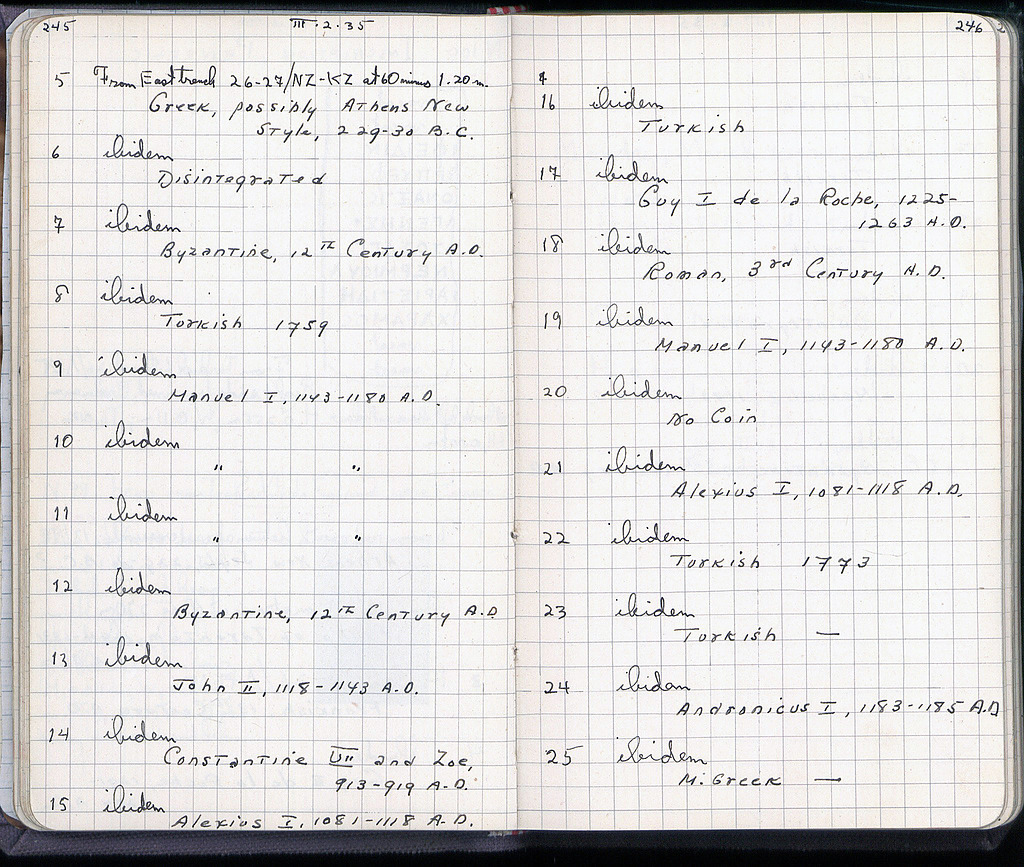 245
III.2.35
5 From East trench 26-27/NZ-KZ at 60 minus 1.20 m.
Greek, possibly Athens New
Style, 229-30 B.C.
6 ibidem
Disintegrated
7 ibidem
Byzantine, 12TH Century A.D.
8 ibidem
Turkish 1759
9 ibidem
Manuel I, 1143-1180 A.D.
10 ibidem
" "
11 ibidem
" "
12 ibidem
Byzantine, 12TH Century A.D
13 ibidem
John II, 1118-1143 A.D.
14 ibidem
Constantine VII and Zoe,
913-919 A.D.
15 ibidem
Alexius I, 1081-1118 A.D.
246
16 ibidem
Turkish
17 ibidem
Guy I de la Roche, 1225-
1263 A.D.
18 ibidem
Roman, 3rd Century A.D.
19 ibidem
Manuel I, 1143-1180 A.D.
20 ibidem
No Coin
21 ibidem
Alexius I, 1081-1118 A.D.
22 ibidem
Turkish 1773
23 ibidem
Turkish —
24 ibidem
Andronicus I, 1183-1185 A.D
25 ibidem
M. Greek —